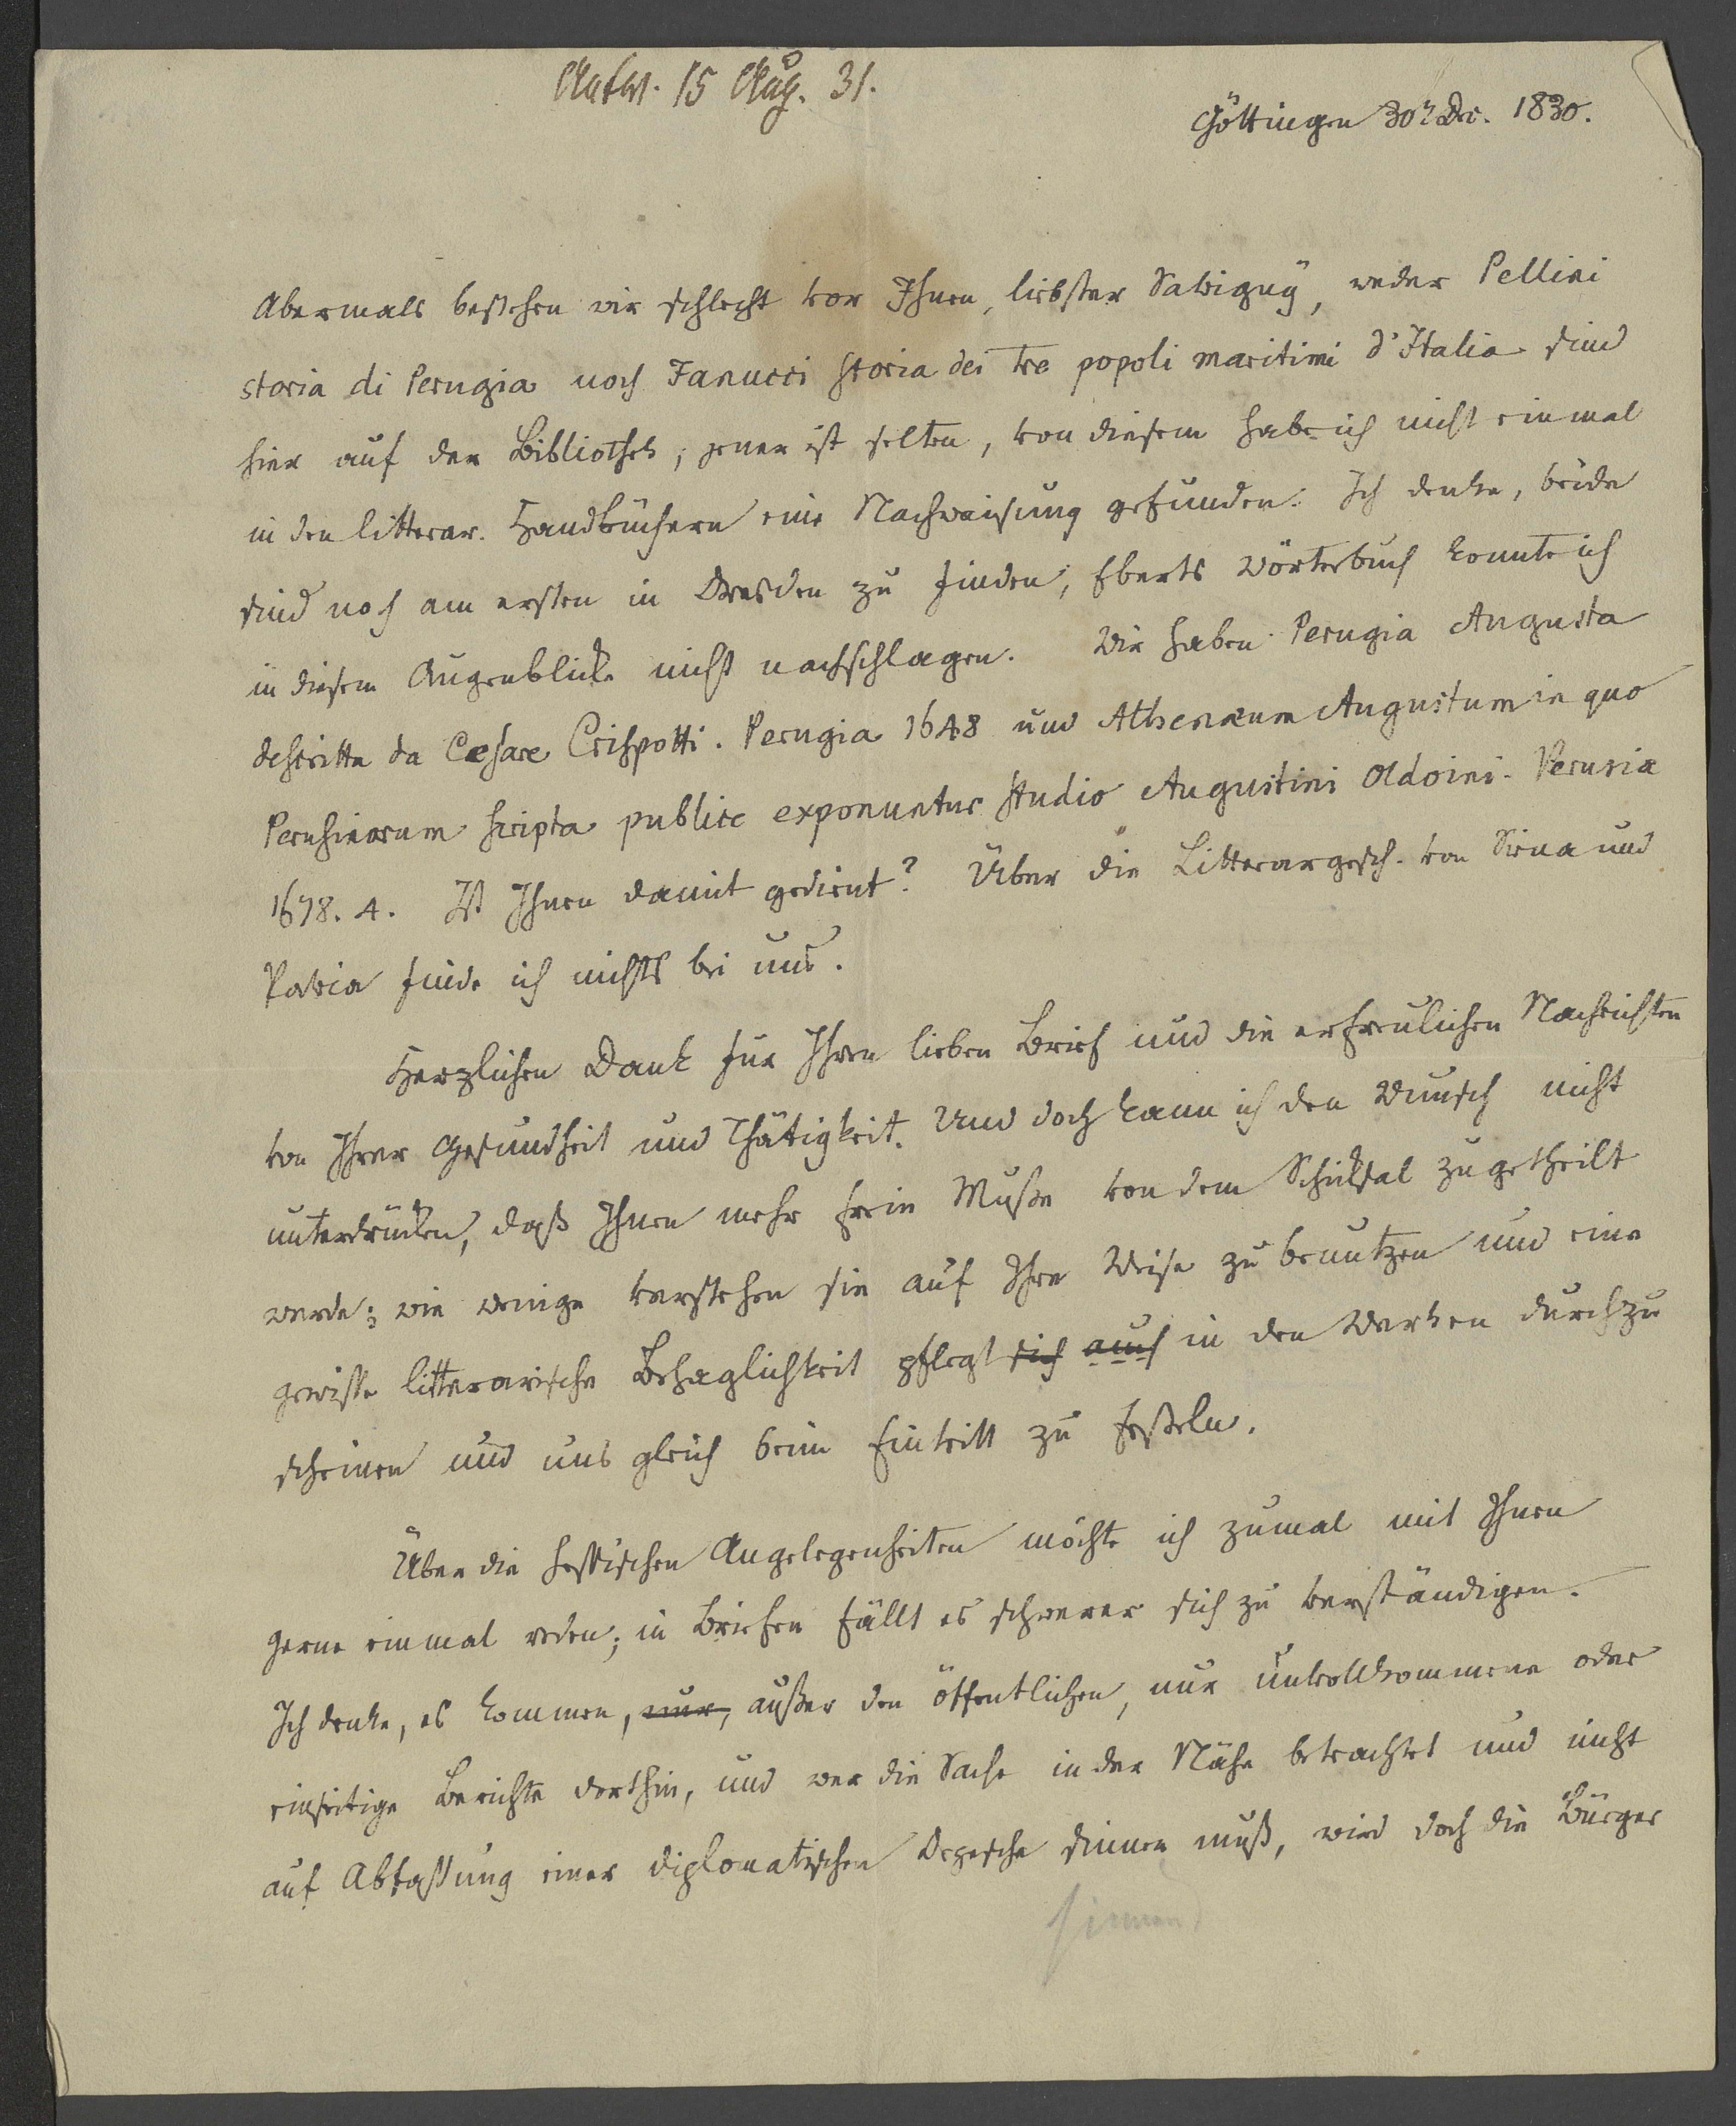 Antw. 15 Aug. 31.
Göttingen 30 Dec. 1830.
Abermals bestehen wir schlecht vor Ihnen, liebster Savigny, weder Pellini
storia di Perugia noch Fanucci storia dei tre popoli maritimi d'Italia sind
hier auf der Bibliothek, jener ist selten, von diesem habe ich nicht einmal
in den litterar. Handbüchern eine Nachweisung gefunden. Ich denke, beide
sind noch am ersten in Dresden zu finden; Eberts Wörterbuch konnte ich
in diesem Augenblicke nicht nachschlagen. Wir haben Perugia Augusta
descritta da Cesare Crispotti. Perugia 1648 und Athenæum Augustum in quo
Perusinorum scripta publice exponuntur studio Augustini Oldoini. Perusiæ
1678. 4. Ist Ihnen damit gedient? Über die Litterargesch. von Siena und
Pavia finde ich nichts bei uns.
Herzlichen Dank für Ihren lieben Brief und die erfreulichen Nachrichten
von Ihrer Gesundheit und Thätigkeit. Und doch kann ich den Wunsch nicht
unterdrücken, daß Ihnen mehr freie Muße von dem Schicksal zugetheilt
werde; wie wenige verstehen sie auf Ihre Weise zu benutzen und eine
gewisse litterarische Behaglichkeit pflegt sich auch in den Werken durchzu
scheinen und uns gleich beim Eintritt zu fesseln.
Über die hessischen Angelegenheiten möchte ich zumal mit Ihnen
gerne einmal reden; in Briefen fällt es schwerer sich zu verständigen.
Ich denke, es kommen, nur, außer den öffentlichen, nur unvollkommene oder
einseitige Berichte dorthin, und wer die Sache in der Nähe betrachtet und nicht
auf Abfassung einer diplomatischen Depesche sinnen muß, wird doch die Bürger
sinnen